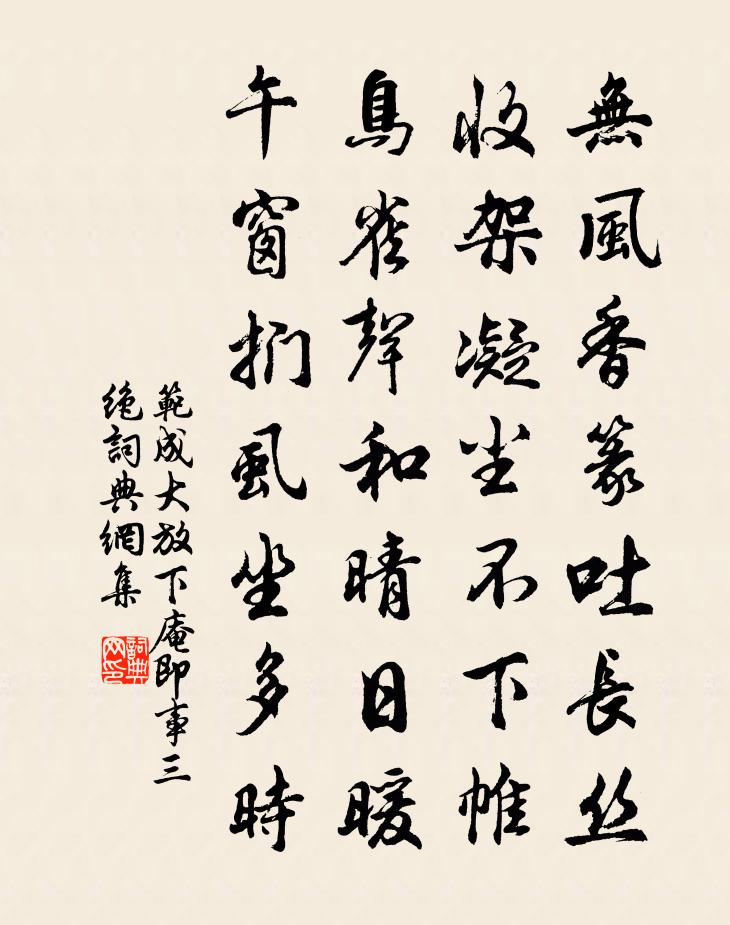 無風香篆吐長丝
收架凝尘不下帷
鳥雀聲和晴日暖
午窗捫虱坐多時
範成大放下庵即事三
絶詞典網集
詞典网印